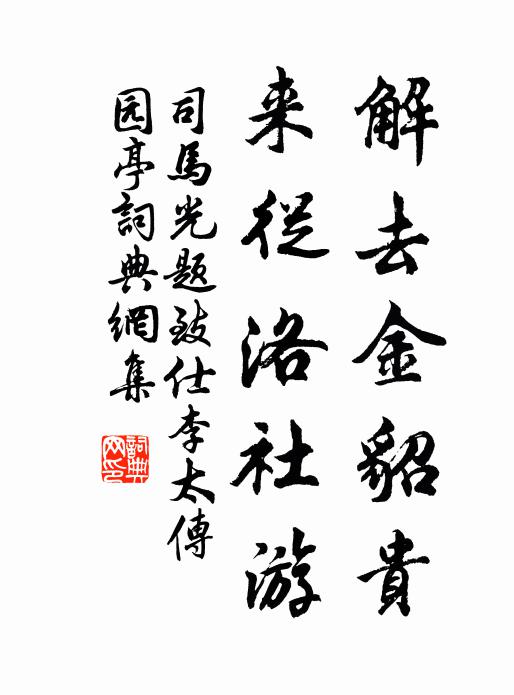 解去金貂貴
来従洛社游
司馬光題致仕李太傅
园亭詞典網集
詞典
网印